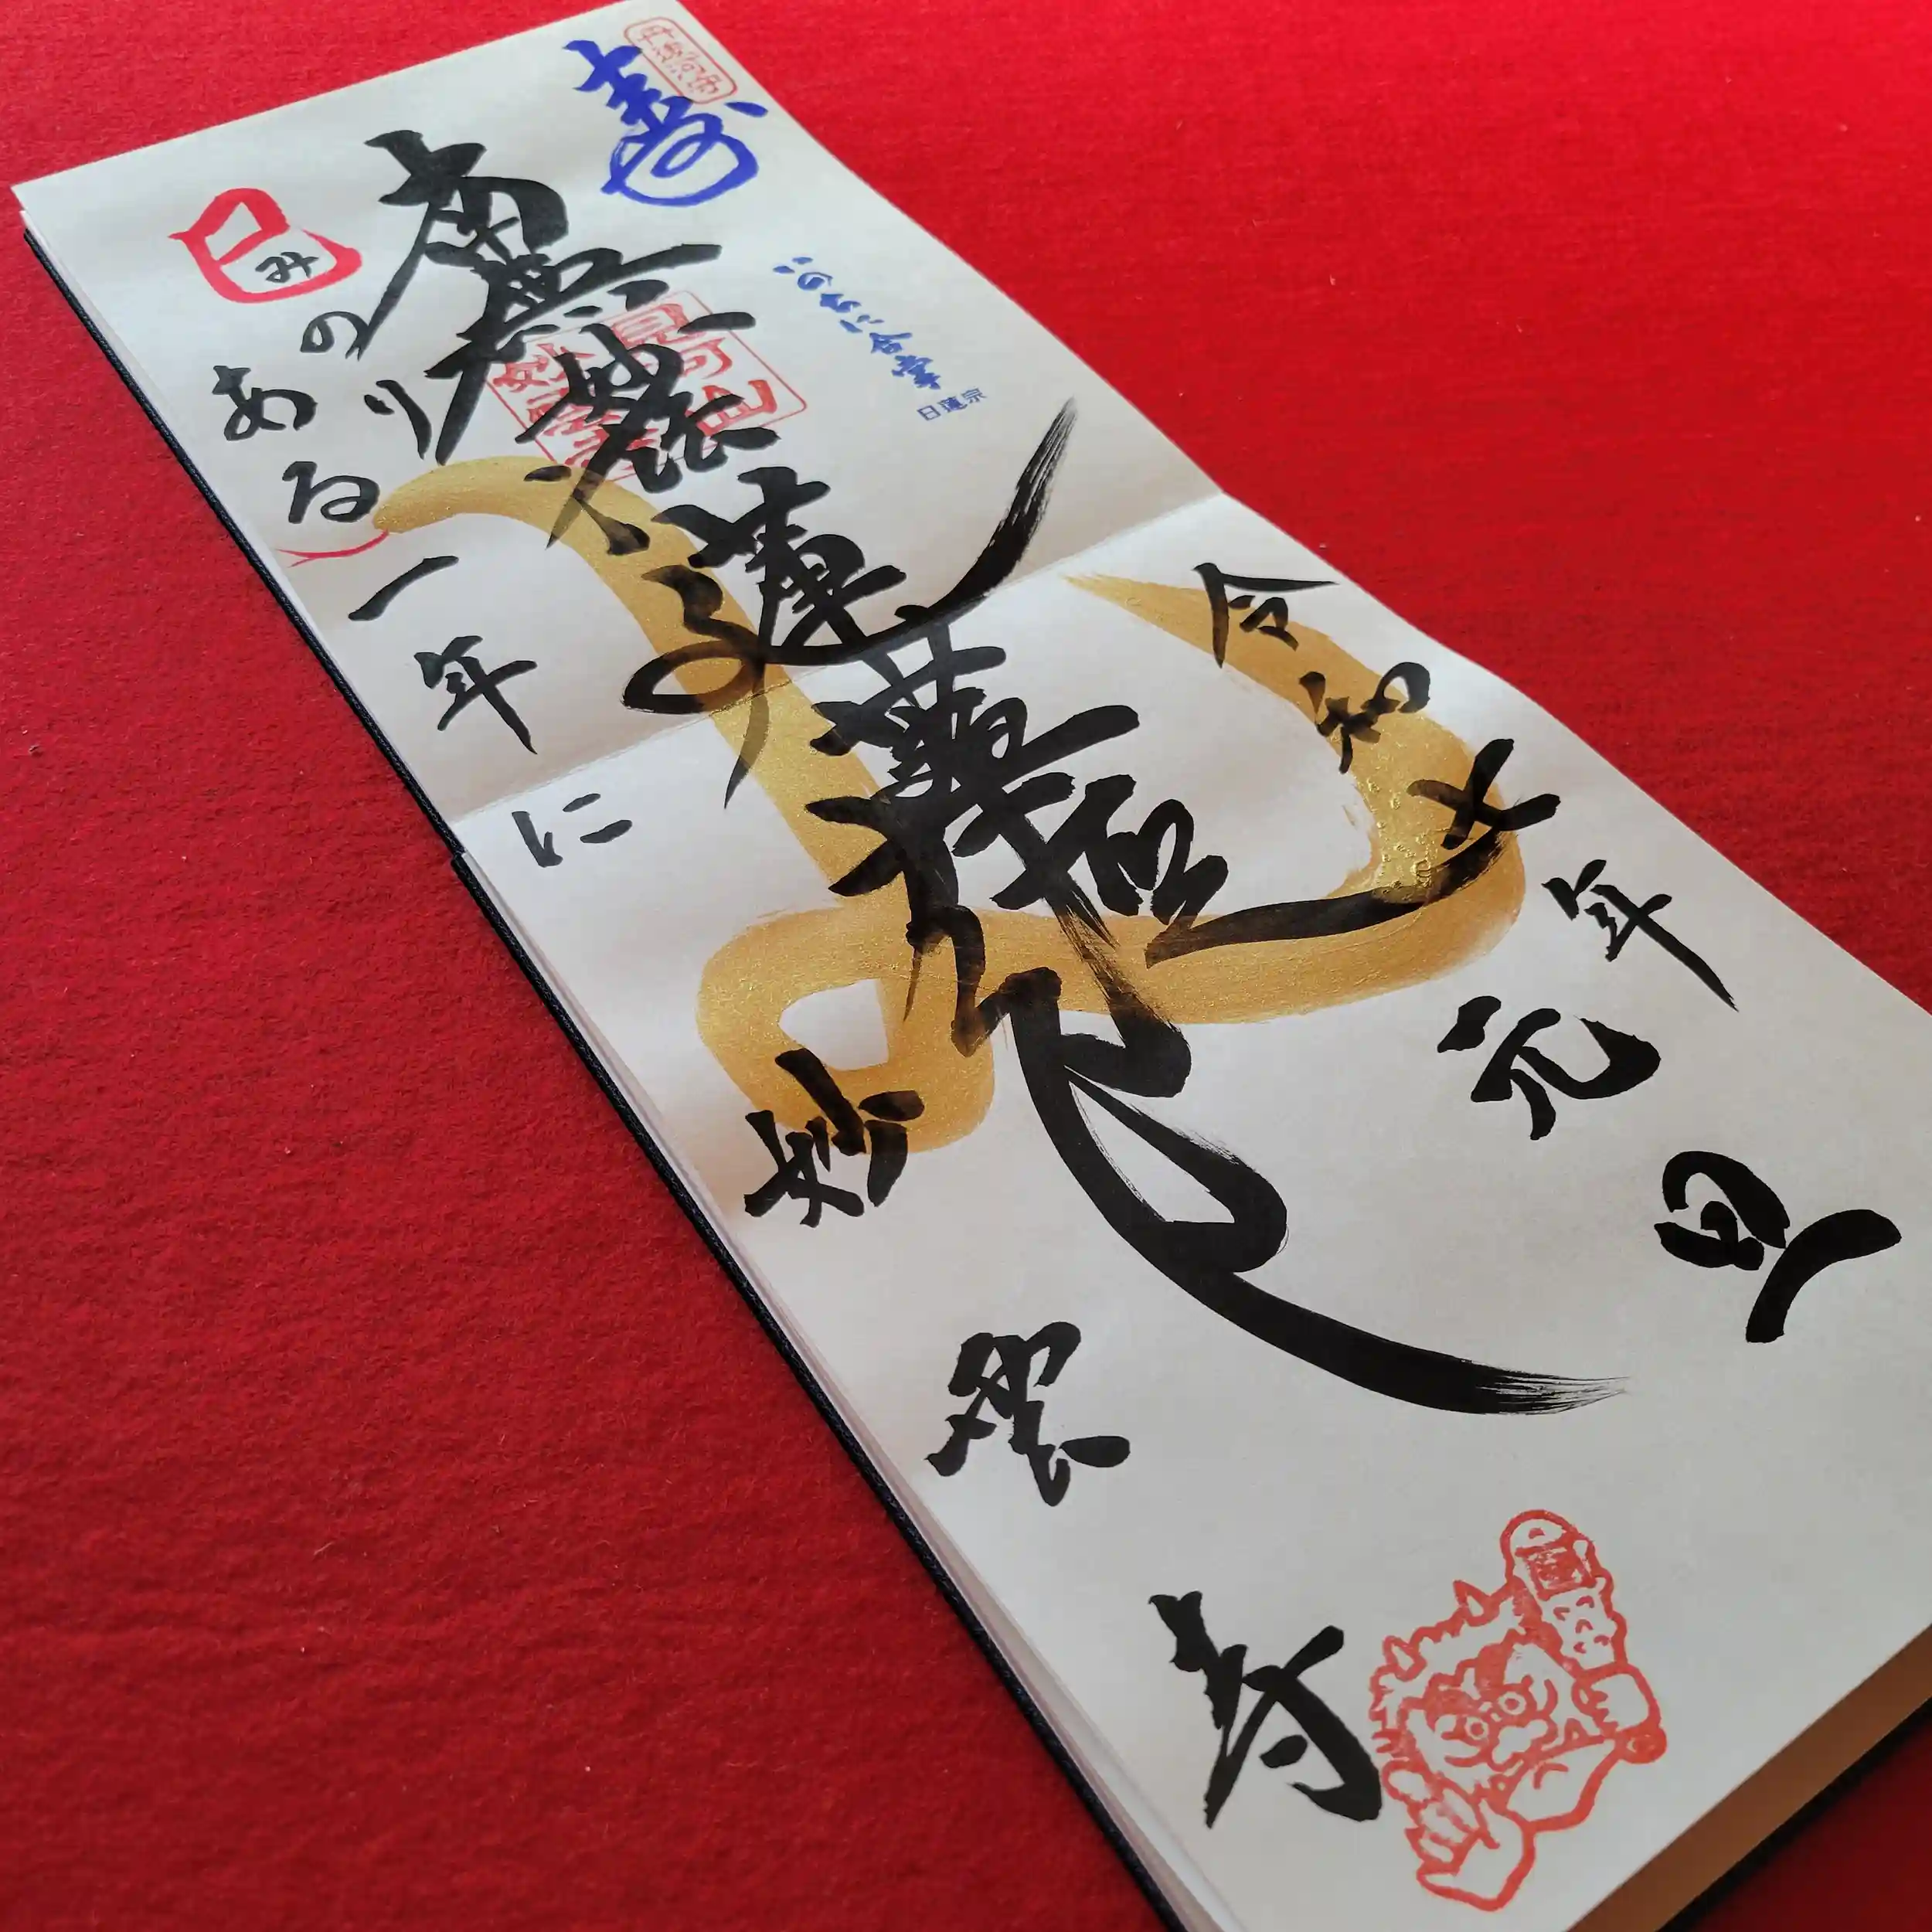 寿
いのちに合掌
日蓮宗
令和七年
元旦
南無妙法蓮華経
巳
みのりある一年に
妙
寺